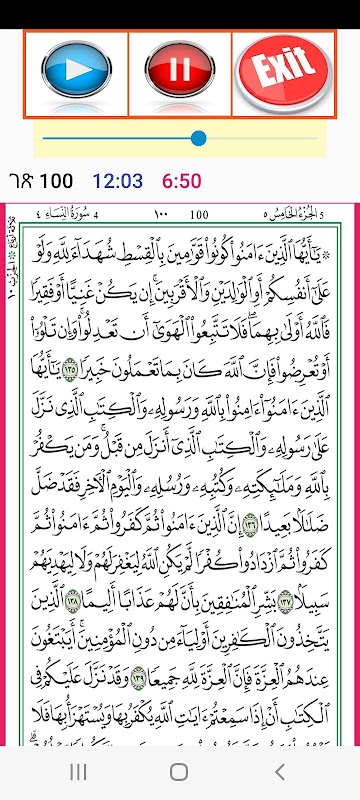 Exit
ገጽ 100 12:03 6:50
5 الجُزْءُ الخَامِسُ ٥ 100 ١٠٠ 4 سُورَةُ النِّسَاءِ ٤
* يَٰٓأَيُّهَا ٱلَّذِينَ ءَامَنُوا۟ كُونُوا۟ قَوَّٰمِينَ بِٱلْقِسْطِ شُهَدَآءَ لِلَّهِ وَلَوْ
عَلَىٰٓ أَنفُسِكُمْ أَوِ ٱلْوَٰلِدَيْنِ وَٱلْأَقْرَبِينَ ۚ إِن يَكُنْ غَنِيًّا أَوْ فَقِيرًا
فَٱللَّهُ أَوْلَىٰ بِهِمَا ۖ فَلَا تَتَّبِعُوا۟ ٱلْهَوَىٰٓ أَن تَعْدِلُوا۟ ۚ وَإِن تَلْوُۥٓا۟
أَوْ تُعْرِضُوا۟ فَإِنَّ ٱللَّهَ كَانَ بِمَا تَعْمَلُونَ خَبِيرًا ١٣٥ يَٰٓأَيُّهَا
ٱلَّذِينَ ءَامَنُوٓا۟ ءَامِنُوا۟ بِٱللَّهِ وَرَسُولِهِۦ وَٱلْكِتَٰبِ ٱلَّذِى نَزَّلَ
عَلَىٰ رَسُولِهِۦ وَٱلْكِتَٰبِ ٱلَّذِىٓ أَنزَلَ مِن قَبْلُ ۚ وَمَن يَكْفُرْ
بِٱللَّهِ وَمَلَٰٓئِكَتِهِۦ وَكُتُبِهِۦ وَرُسُلِهِۦ وَٱلْيَوْمِ ٱلْءَاخِرِ فَقَدْ ضَلَّ
ضَلَٰلًۢا بَعِيدًا ١٣٦ إِنَّ ٱلَّذِينَ ءَامَنُوا۟ ثُمَّ كَفَرُوا۟ ثُمَّ ءَامَنُوا۟ ثُمَّ
كَفَرُوا۟ ثُمَّ ٱزْدَادُوا۟ كُفْرًا لَّمْ يَكُنِ ٱللَّهُ لِيَغْفِرَ لَهُمْ وَلَا لِيَهْدِيَهُمْ
سَبِيلًۢا ١٣٧ بَشِّرِ ٱلْمُنَٰفِقِينَ بِأَنَّ لَهُمْ عَذَابًا أَلِيمًا ١٣٨ ٱلَّذِينَ
يَتَّخِذُونَ ٱلْكَٰفِرِينَ أَوْلِيَآءَ مِن دُونِ ٱلْمُؤْمِنِينَ ۚ أَيَبْتَغُونَ
عِندَهُمُ ٱلْعِزَّةَ فَإِنَّ ٱلْعِزَّةَ لِلَّهِ جَمِيعًا ١٣٩ وَقَدْ نَزَّلَ عَلَيْكُمْ فِى
ٱلْكِتَٰبِ أَنْ إِذَا سَمِعْتُمْ ءَايَٰتِ ٱللَّهِ يُكْفَرُ بِهَا وَيُسْتَهْزَأُ بِهَا فَلَا